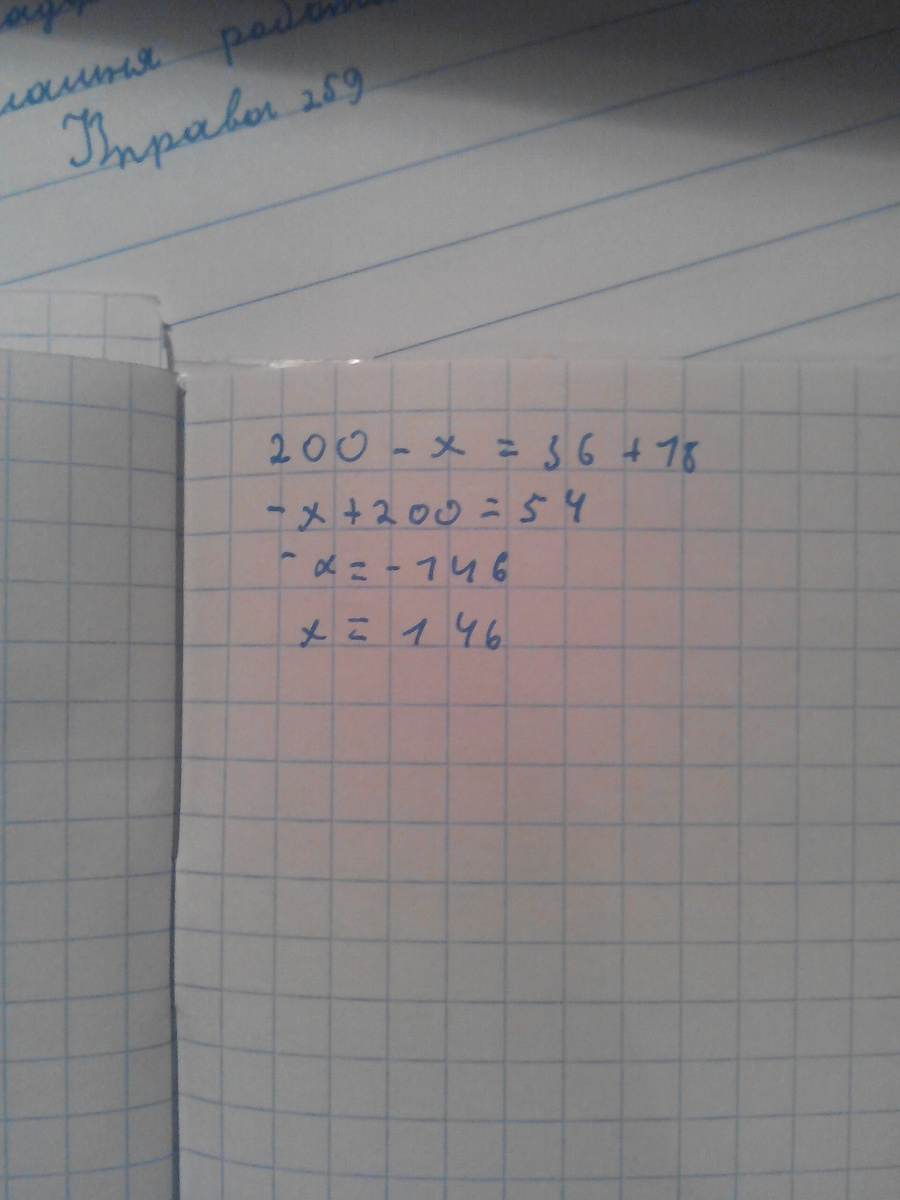 лашня
Вправа 259
200 - x = 36 + 18
-x + 200 = 54
-x = -146
x = 146